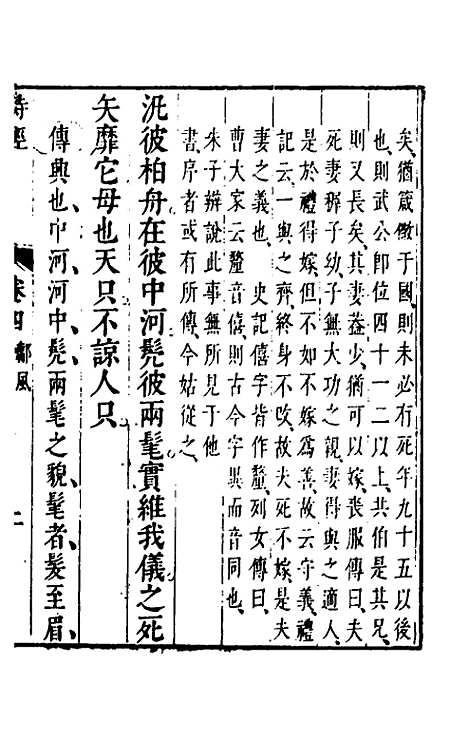 矣、猶箴儆于國、則未必有死年九十五以後
也、則武公卽位四十一二以上、共伯是其兄、
則又長矣、其妻葢少、猶可以嫁、喪服傳曰、夫
死妻穉子幼、子無大功之親、妻得與之適人、
是於禮得嫁、但不如不嫁爲善、故云守義、禮
記云、一與之齊、終身不攺、故夫死不嫁、是夫
妻之義也、史記僖字皆作釐、列女傳曰、
曹大家云、釐音僖、則古今字異而音同也、
朱子辨說此事無所見于他
書、序者或有所傳、今姑從之、
汎彼柏舟在彼中河髧彼兩髦實維我儀之死
矢靡它母也天只不諒人只
傳興也、中河、河中、髧兩髦之貌、髦者、髮至眉、
詩經 卷四 鄘風 二